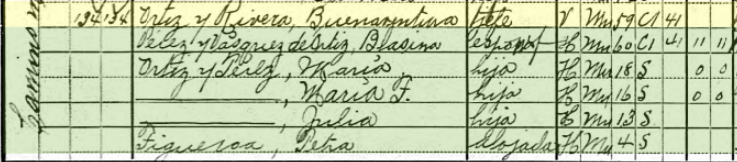 134 134 Ortiz y Rivera, Buenaventura Jefe V Mu 59 C1 41
Pélez y Vásquez de Ortiz, Blasina esposa H Mu 60 C1 41 11 11
Ortiz y Pérez, María hija H Mu 18 S 0 0
———, María F. hija H Mu 16 S 0 0
———, Julia hija H Mu 13 S
Figueroa, Petra Alojada H Mu 4 S
Camino